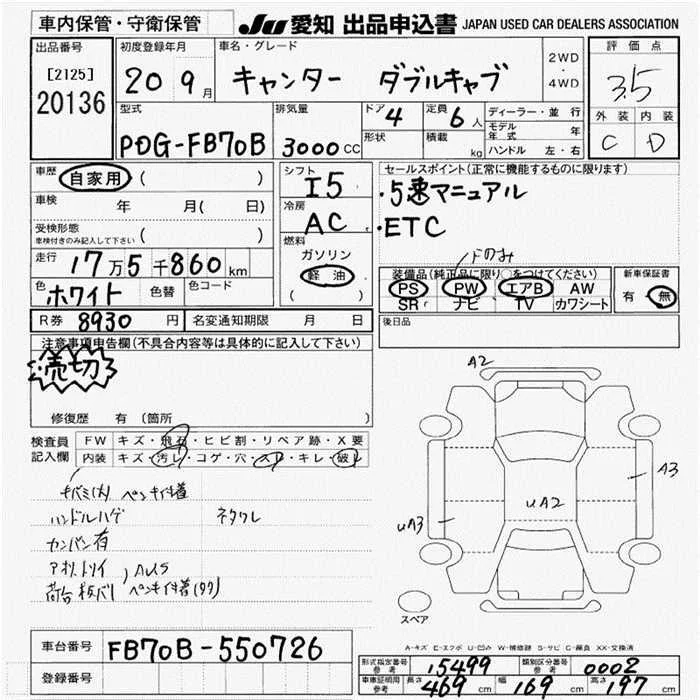 車内保管・守衛保管 JU 愛知 出品申込書 JAPAN USED CAR DEALERS ASSOCIATION
出品番号 初度登録年月 車名・グレード 評価点
[2125] 20 9月 キャンター ダブルキャブ 2WD・4WD 3.5
20136
型式 排気量 ドア 4 定員 6人 ディーラー・並行 外装 内装
PDG-FB70B 3000cc 形状 積載 kg モデル年式 年 C D
ハンドル 左・右
車歴 自家用 ( ) シフト I5 セールスポイント(正常に機能するものに限ります)
車検 年 月( 日) 冷房 AC ・5速マニュアル
受検形態 ( ) ・ETC
車検付きのみ記入して下さい
燃料 ガソリン
走行 17万5千860km 軽油 ( )
色 ホワイト 色替 色コード
装備品(純正品に限り○をつけてください) 新車保証書
PS PW エアB AW 有・無
SR ナビ TV カワシート
R券 8930円 名変通知期限 月 日 後日品
注意事項申告欄(不具合内容等は具体的に記入して下さい)
売切
修復歴 有 (箇所 )
検査員 FW キズ・飛石・ヒビ割・リペア跡・X要
記入欄 内装 キズ・汚レ・コゲ・穴・スレ・キレ・破レ
ハンドルハゲ
カンバン有
A2
A3
UA2
UA3
スペア
A-キズ E-エクボ U-凹み W-補修跡 S-サビ C-腐食 XX-交換済
車台番号 FB70B-550726
登録番号
形式指定番号 参考 15499 類別区分番号 参考 0002
車庫証明用 参考 長さ 469cm 幅 169cm 高さ 197cm